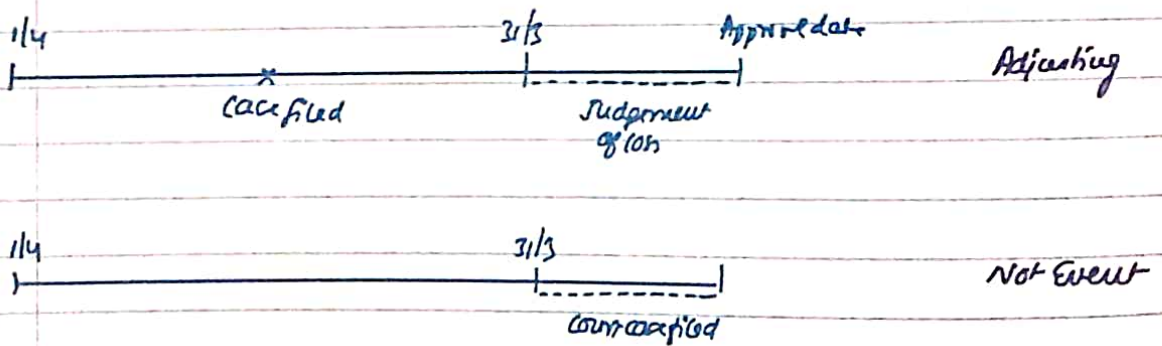 1/4
31/3
Approval date
Adjusting
Case filed
Judgement
of loss
1/4
31/3
Not Event
Court case filed